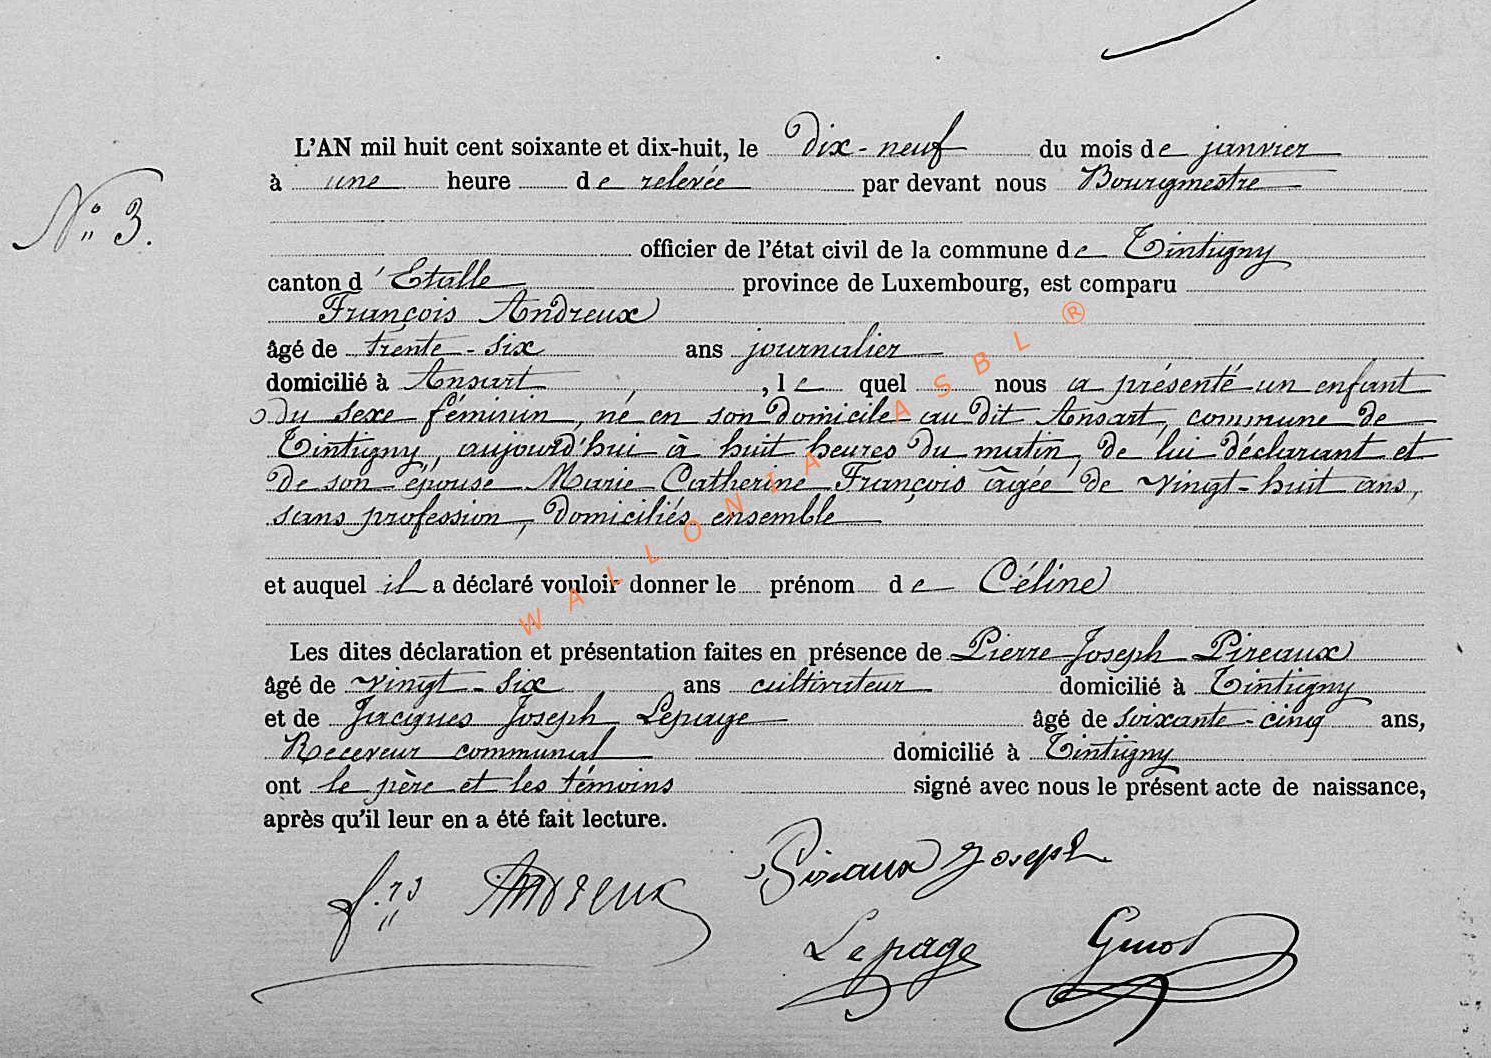 N° 3.
L'AN mil huit cent soixante et dix-huit, le dix-neuf du mois de janvier
à une heure de relevée par devant nous Bourgmestre
officier de l'état civil de la commune de Tintigny
canton d'Etalle province de Luxembourg, est comparu
François Andreux
âgé de trente-six ans journalier
domicilié à Ansart, lequel nous a présenté un enfant
du sexe féminin, né en son domicile au dit Ansart, commune de
Tintigny, aujourd'hui à huit heures du matin, de lui déclarant et
de son épouse Marie Catherine François âgée de vingt-huit ans,
sans profession, domiciliés ensemble
et auquel il a déclaré vouloir donner le prénom de Céline
Les dites déclaration et présentation faites en présence de Pierre Joseph Pireaux
âgé de vingt-six ans cultivateur domicilié à Tintigny
et de Jacques Joseph Lepage âgé de soixante-cinq ans,
Receveur communal domicilié à Tintigny
ont le père et les témoins signé avec nous le présent acte de naissance,
après qu'il leur en a été fait lecture.
f.rs Andreux Pireaux Joseph
Lepage
WALLONIA ASBL ®